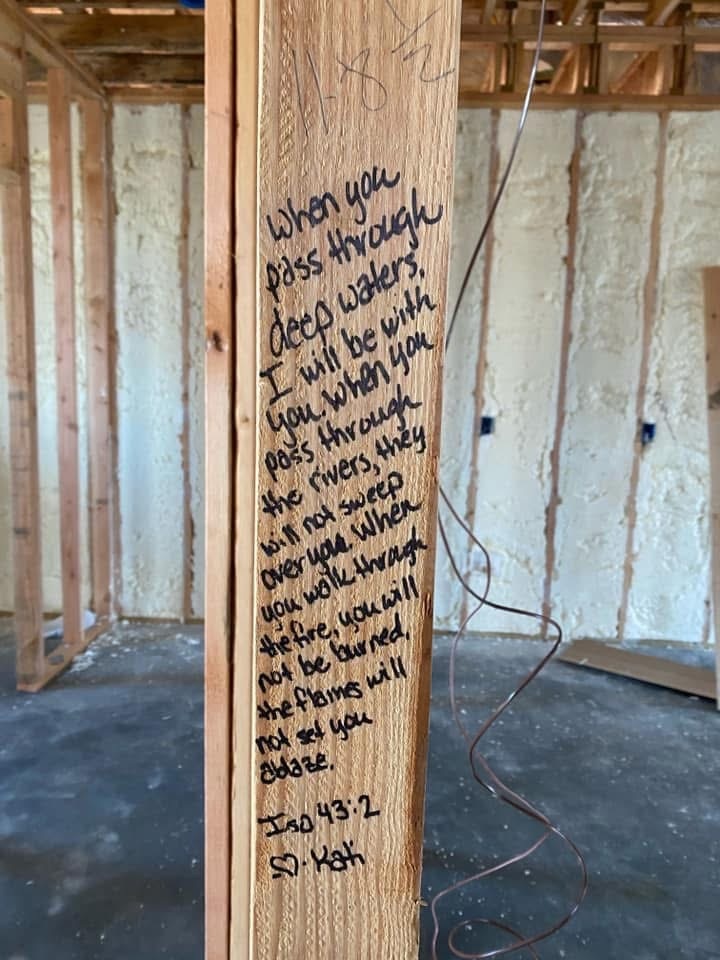 11-8 1/2
When you
pass through
deep waters,
I will be with
you. When you
pass through
the rivers, they
will not sweep
over you. When
you walk through
the fire, you will
not be burned,
the flames will
not set you
ablaze.
Isa 43:2
♡- Kati